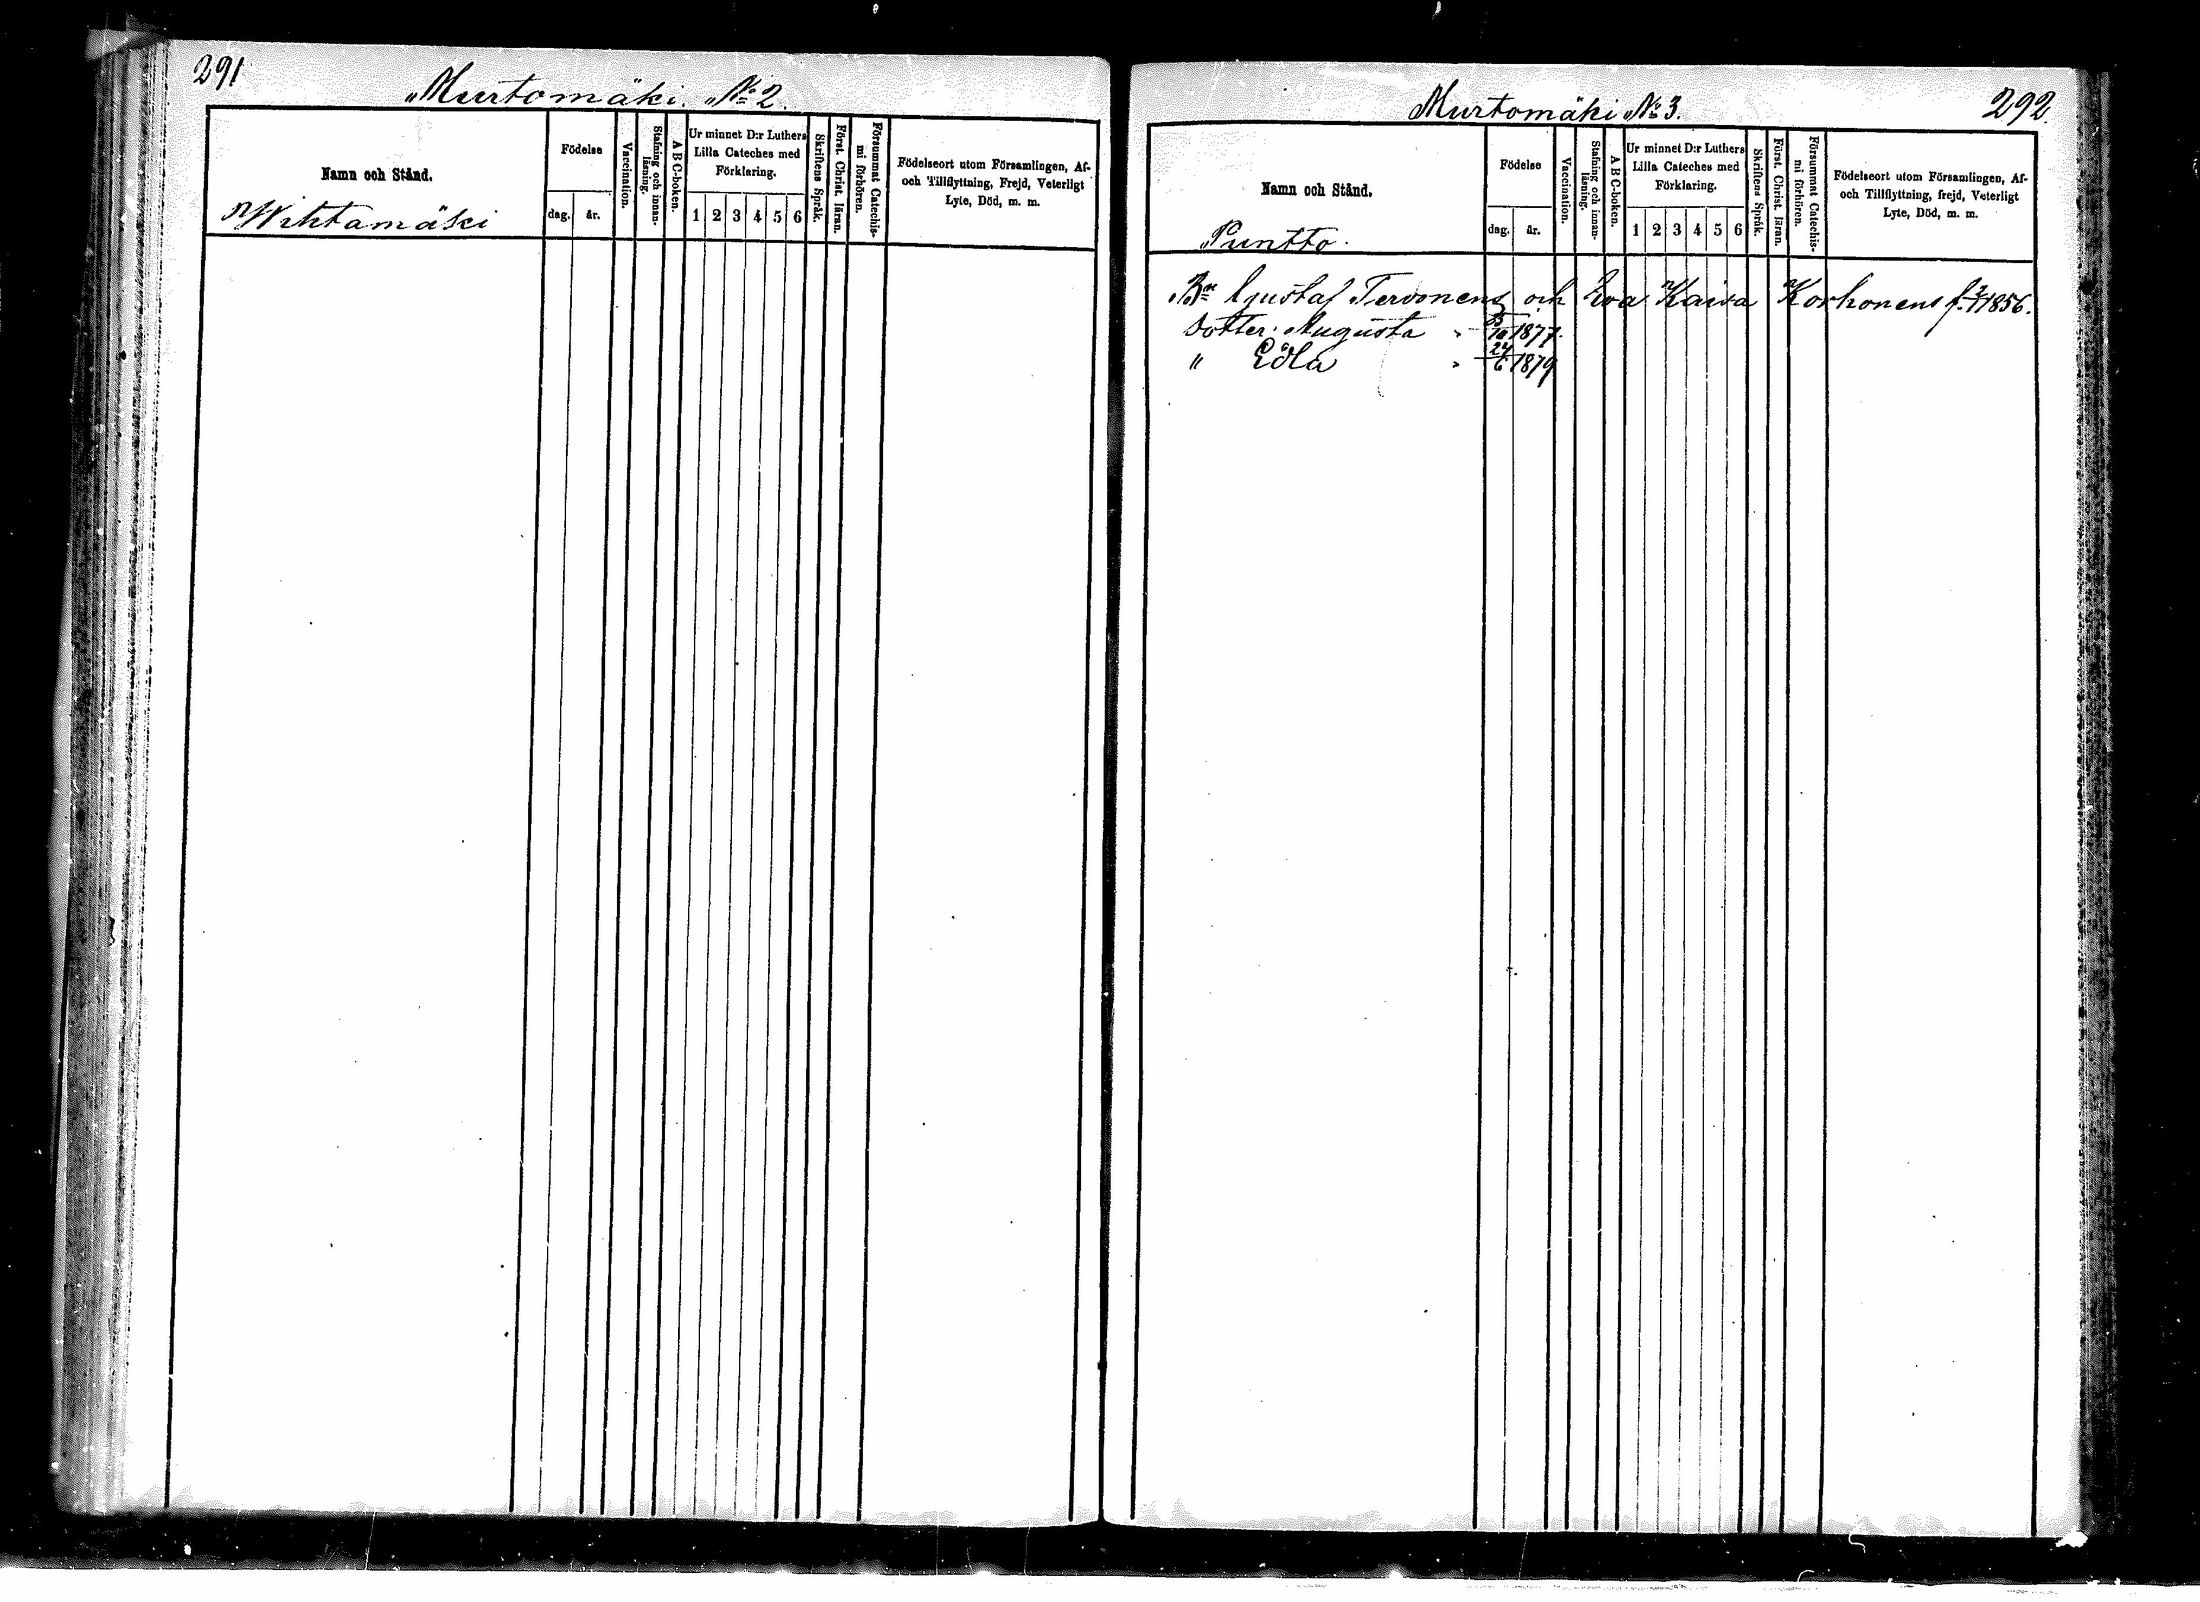 291
Murtomäki. № 2.
Namn och Stånd.
Födelse
dag.
år.
Vaccination.
Stafning och innan-
läsning.
A B C-boken.
Ur minnet D:r Luthers
Lilla Cateches med
Förklaring.
1 2 3 4 5 6
Skriftens Språk.
Först. Christ. läran.
Försummat Catechis-
mi förhören.
Födelseort utom Församlingen, Af-
och Tillflyttning, Frejd, Veterligt
Lyte, Död, m. m.
Wihtamäki
Murtomäki № 3.
292.
Namn och Stånd.
Födelse
dag.
år.
Vaccination.
Stafning och innan-
läsning.
A B C-boken.
Ur minnet D:r Luthers
Lilla Cateches med
Förklaring.
1 2 3 4 5 6
Skriftens Språk.
Först. Christ. läran.
Försummat Catechis-
mi förhören.
Födelseort utom Församlingen, Af-
och Tillflyttning, frejd, Veterligt
Lyte, Död, m. m.
Puntto.
Gustaf Tervonens och Eva Kaisa Korhonens f. 1856.
dotter: Augusta 1877.
" Edla 24/6 1879